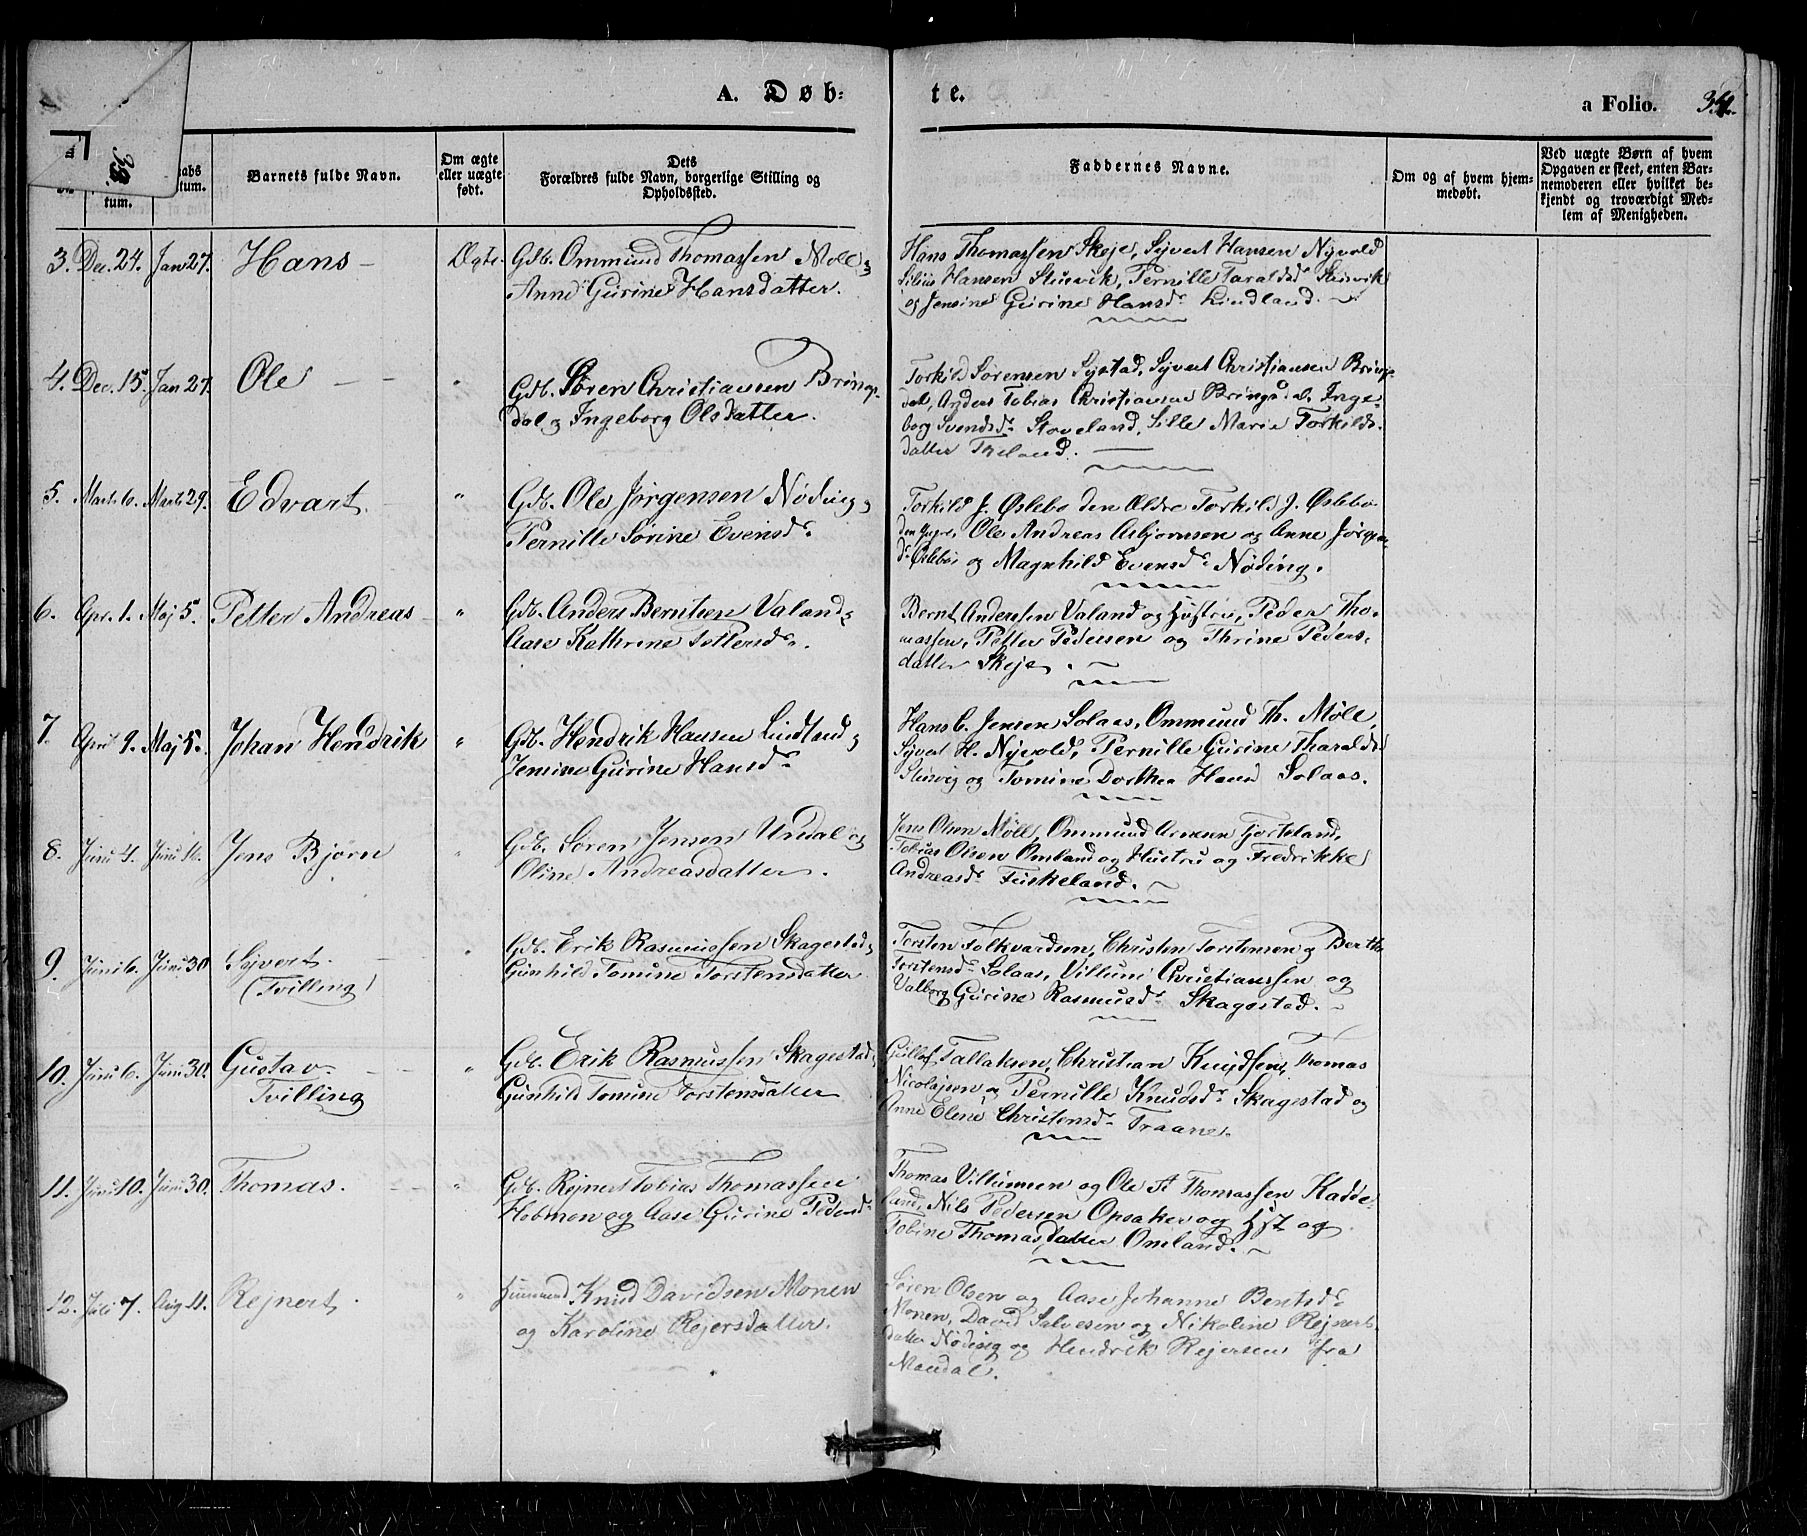 A. Døb=
te.
a Folio. 34.
33.
tum.
Barnets fulde Navn.
Om ægte
eller uægte
født.
Dets
Forældres fulde Navn, borgerlige Stilling og
Opholdssted.
Faddernes Navne.
Om og af hvem hjem=
medøbt.
Ved uægte Børn af hvem
Opgaven er skeet, enten Bar=
nemoderen eller hvilket be=
kjendt og troværdigt Med=
lem af Menigheden.
3. Dec. 24. Jan 27. Hans – Ægte. Gdb. Ommund Thomassen Møll og
Anne Gurine Hansdatter.
Hans Thomassen Skeje, Syvert Hansen Nyvold
Hansen Stusvik, Pernille Taraldsd. Stusvik
og Jensine Gurine Hansd. Lindland.
4. Dec. 15. Jan 27. Ole – – " Gdb. Søren Christiansen Brings-
dal og Ingeborg Olsdatter.
Torkild Sørensen Systad, Syvert Christiansen Brings-
dal, Anders Tobias Christiansen Bringsdal, Inge-
borg Svendsd. Stoveland, Sille Marie Torkilds-
datter Freland.
5. Marts 6. Marts 29. Edvart. " Gdb. Ole Jørgensen Nøding og
Pernille Sørine Evensd.
Torkild J. Øslebø den Ældre Torkild J. Øslebø
den Yngre, Ole Andreas Asbjørnsen og Anne Jørgen-
sd. Øslebø og Magnhild Evensd. Nøding.
6. Apr. 1. Maj 5. Petter Andreas – " Gdb. Anders Berntsen Valand og
Aase Kathrine Pettersd.
Bernt Anderssen Valand og Hustru, Peder Tho-
massen, Petter Pedersen og Thrine Peders-
datter Skeje.
7. April 9. Maj 5. Johan Hendrik " Gdb. Hendrik Hansen Lindland og
Jensine Gurine Hansd.
Hans C. Jensen Solaas, Ommund Th. Møll,
Syvert H. Nyvold, Pernille Gurine Tharaldsd.
Stusvig og Tomine Dorthea Hansd Solaas.
8. Juni 4. Juni 16. Jens Bjørn " Gdb. Søren Jensen Undal og
Oline Andreasdatter.
Jens Olsen Møll, Ommund Arnesen Fjorteland,
Tobias Olsen Omland og Hustru og Fredrikke
Andreasd. Fuskeland.
9. Juni 6. Juni 30 Syvert. – " Gdb. Erik Rasmussen Skagestad og
(Tvilling) Gunhild Tomine Torstensdatter
Torsten Folkvardsen, Christen Torstensen og Berthe
Torstensd. Solaas, Villum Christianssen og
Valborg Gurine Rasmusd. Skagestad.
10. Juni 6. Juni 30. Gustav. – – " Gdb. Erik Rasmussen Skagestad og
Tvilling Gunhild Tomine Torstensdatter
Gullof Tallaksen, Christian Knudsen, Thomas
Nicolajsen og Pernille Knudsd. Skagestad og
Anne Elene Christensd. Traane.
11. Juni 10. Juni 30. Thomas. – – " Gdb. Rejnert Tobias Thomassen
Holmen og Aase Gurine Pedersd.
Thomas Villumsen og Ole A Thomassen Kadde-
land, Nils Pedersen Opsaker og Hst og
Tobine Thomasdatter Omland.
12. Juli 7. Aug 11. Rejnert. " Huusmand Knud Davidsen Monen
og Karoline Rejersdatter.
Søren Olsen og Aase Johanne Bentsd.
Monen, David Salvesen og Nikoline Rejnerts-
datter Nøding og Hendrik Rejersen fra
Mandal.